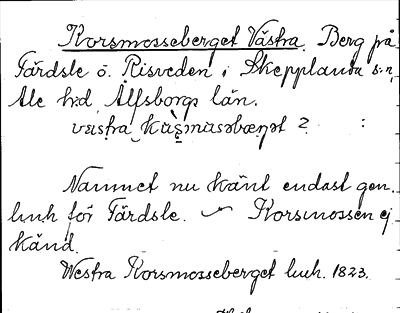 Korsmosseberget Västra. Berg på
Färdsle ö. Risveden i Skepplanda s:n,
Ale h:d, Älfsborgs län.
västra kårsmåsabærjət 2 :
Namnet nu känt endast gen.
luh för Färdsle. — Korsmossen ej
känd.
Westra Korsmosseberget luh. 1823.